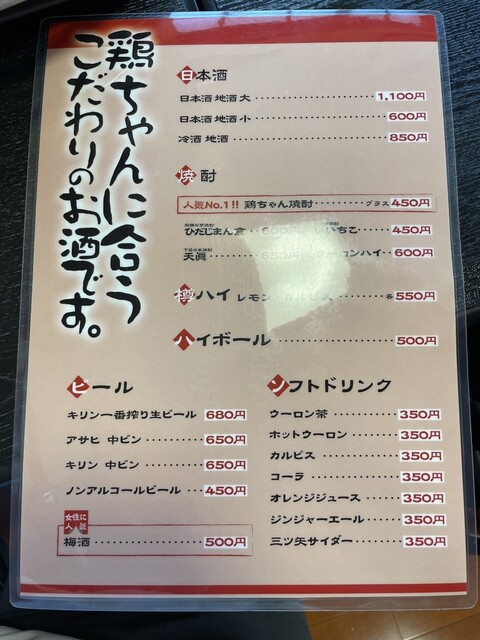 鶏ちゃんに合う
こだわりのお酒です。
日本酒
日本酒 地酒 大 1,100円
日本酒 地酒 小 600円
冷酒 地酒 850円
焼酎
人気No.1!! 鶏ちゃん焼酎 グラス 450円
ひだじまん倉 600円 いいちこ 450円
天眞 650円 ウーロンハイ 600円
樽ハイ レモン カルピス 各 550円
ハイボール 500円
ビール
キリン一番搾り生ビール 680円
アサヒ 中ビン 650円
キリン 中ビン 650円
ノンアルコールビール 450円
女性に
人気
梅酒 500円
ソフトドリンク
ウーロン茶 350円
ホットウーロン 350円
カルピス 350円
コーラ 350円
オレンジジュース 350円
ジンジャーエール 350円
三ツ矢サイダー 350円